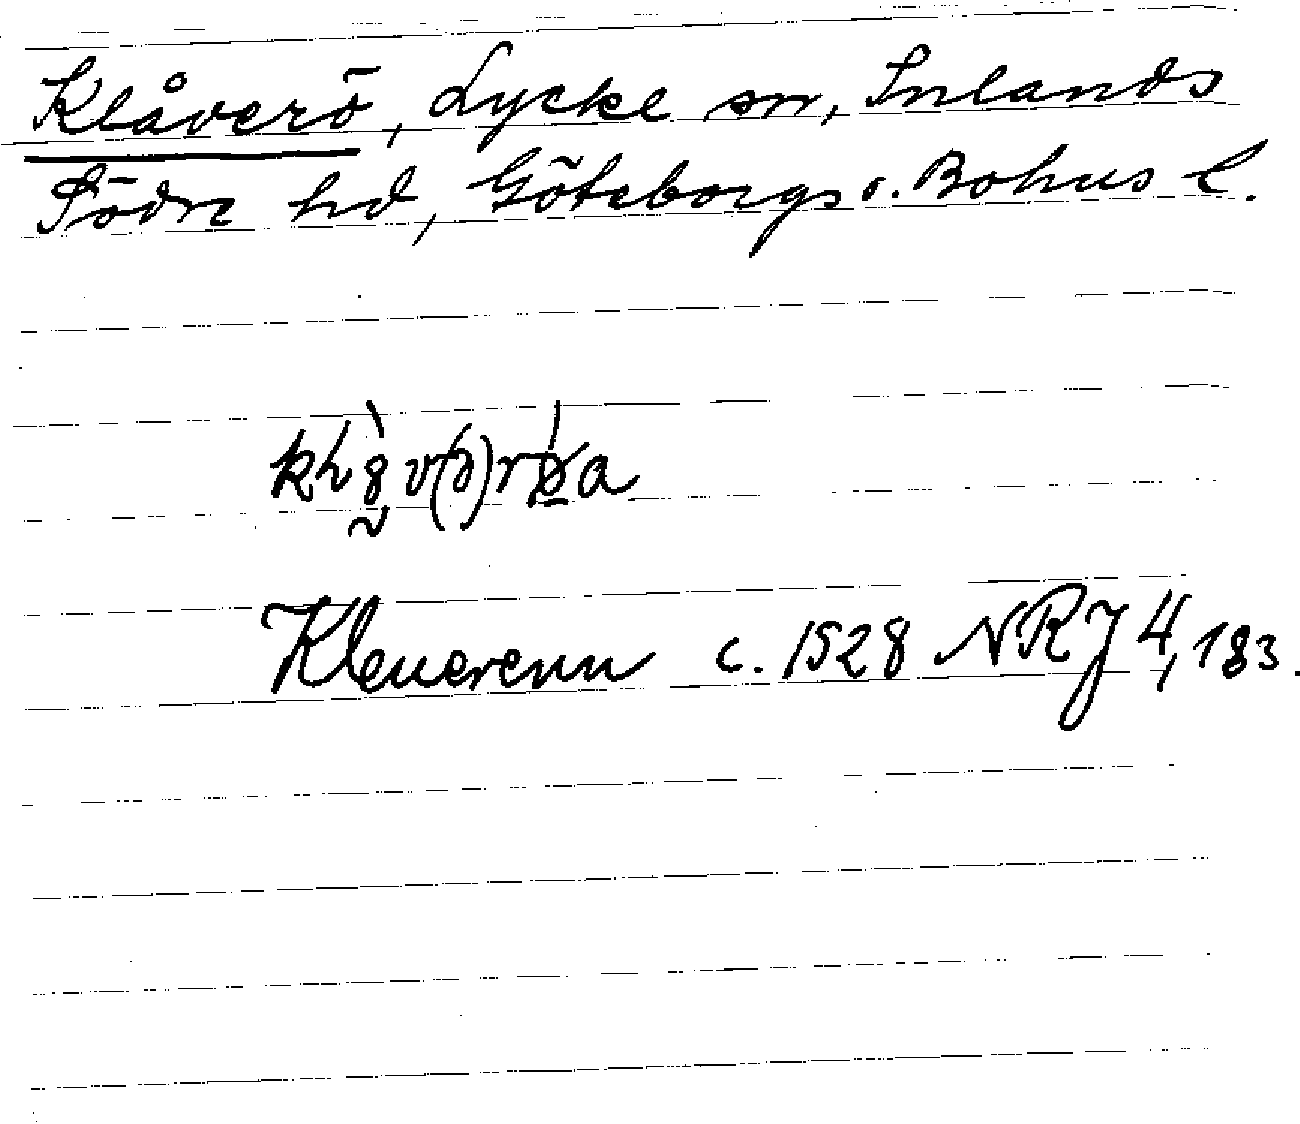 Klåverö, Lycke sn, Inlands
Södre hd, Göteborgs o. Bohus l.
Kleuerenn c. 1528 NRJ 4, 183.